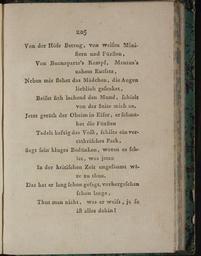 205
Von der Höfe Betrug, von weisen Mini-
stern und Fürsten,
Von Buonaparte's Kampf, Mantua's
nahem Entsatz,
Neben mir stehet das Mädchen, die Augen
lieblich gesenket,
Beißet sich lachend den Mund, schielt
von der Seite mich an.
Jetzt geräth der Oheim in Eifer, er schmä-
het die Fürsten
Tadelt heftig das Volk, schilt ein ver-
rätherisches Pack,
Sagt sein kluges Bedünken, woran es feh-
let, was jetzo
In der kritischen Zeit ungesäumt wä-
re zu thun.
Das hat er lang schon gesagt, vorhergesehen
schon lange,
Thut man nicht, was er weiß, ja so
ist alles dahin!